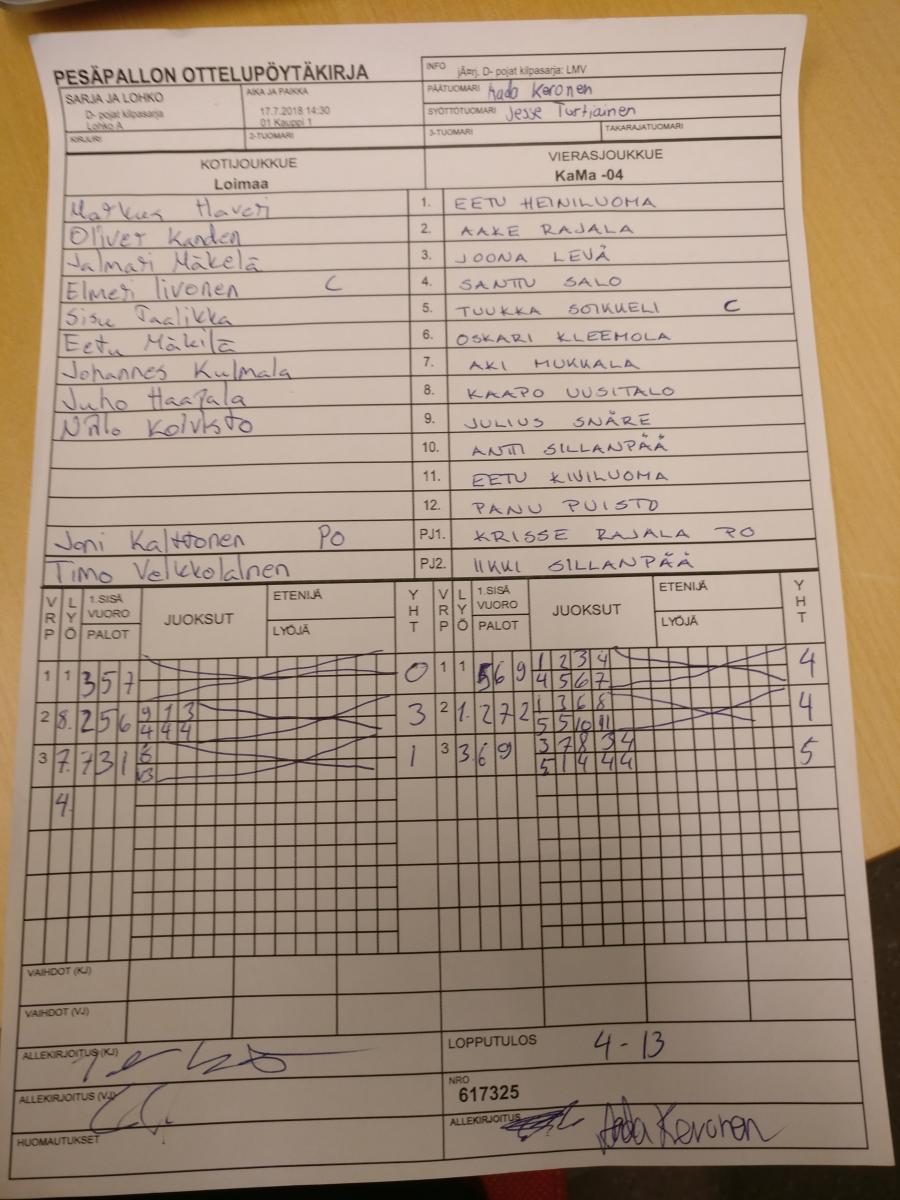 PESÄPALLON OTTELUPÖYTÄKIRJA
INFO jÄ¤rj. D- pojat kilpasarja: LMV
SARJA JA LOHKO
D- pojat kilpasarja
Lohko A
AIKA JA PAIKKA
17.7.2018 14:30
01 Kauppi 1
PÄÄTUOMARI Aada Keronen
SYÖTTÖTUOMARI Jesse Turtiainen
KIRJURI
2-TUOMARI
3-TUOMARI
TAKARAJATUOMARI
KOTIJOUKKUE
Loimaa
VIERASJOUKKUE
KaMa -04
Markus Haveri 1. EETU HEINILUOMA
Oliver Kanden 2. AAKE RAJALA
Jalmari Mäkelä 3. JOONA LEVÄ
Elmeri Iivonen C 4. SANTTU SALO
Sisu Taalikka 5. TUUKKA SOIKKELI C
Eetu Mäkilä 6. OSKARI KLEEMOLA
Johannes Kulmala 7. AKI MUKKALA
Juho Haapala 8. KAAPO UUSITALO
Niilo Koivisto 9. JULIUS SNÄRE
10. ANTTI SILLANPÄÄ
11. EETU KIVILUOMA
12. PANU PUISTO
Joni Kalttonen PO PJ1. KRISSE RAJALA PO
Timo Veikkolainen PJ2. IIKKI SILLANPÄÄ
VRP LYÖ 1.SISÄ VUORO PALOT JUOKSUT ETENIJÄ LYÖJÄ YHT VRP LYÖ 1.SISÄ VUORO PALOT JUOKSUT ETENIJÄ LYÖJÄ YHT
1 1 3 5 7 0 1 1 5 6 9 1 2 3 4 4
4 5 6 7
2 8. 2 5 6 9 1 3 3 2 1. 2 7 2 1 3 6 8 4
4 4 4 5 5 10 11
3 7. 7 3 1 6 1 3 3. 6 9 3 7 8 3 4 5
5 1 4 4 4
4.
VAIHDOT (KJ)
VAIHDOT (VJ)
ALLEKIRJOITUS (KJ)
LOPPUTULOS 4 - 13
ALLEKIRJOITUS (VJ)
NRO
617325
HUOMAUTUKSET
ALLEKIRJOITUS Aada Keronen